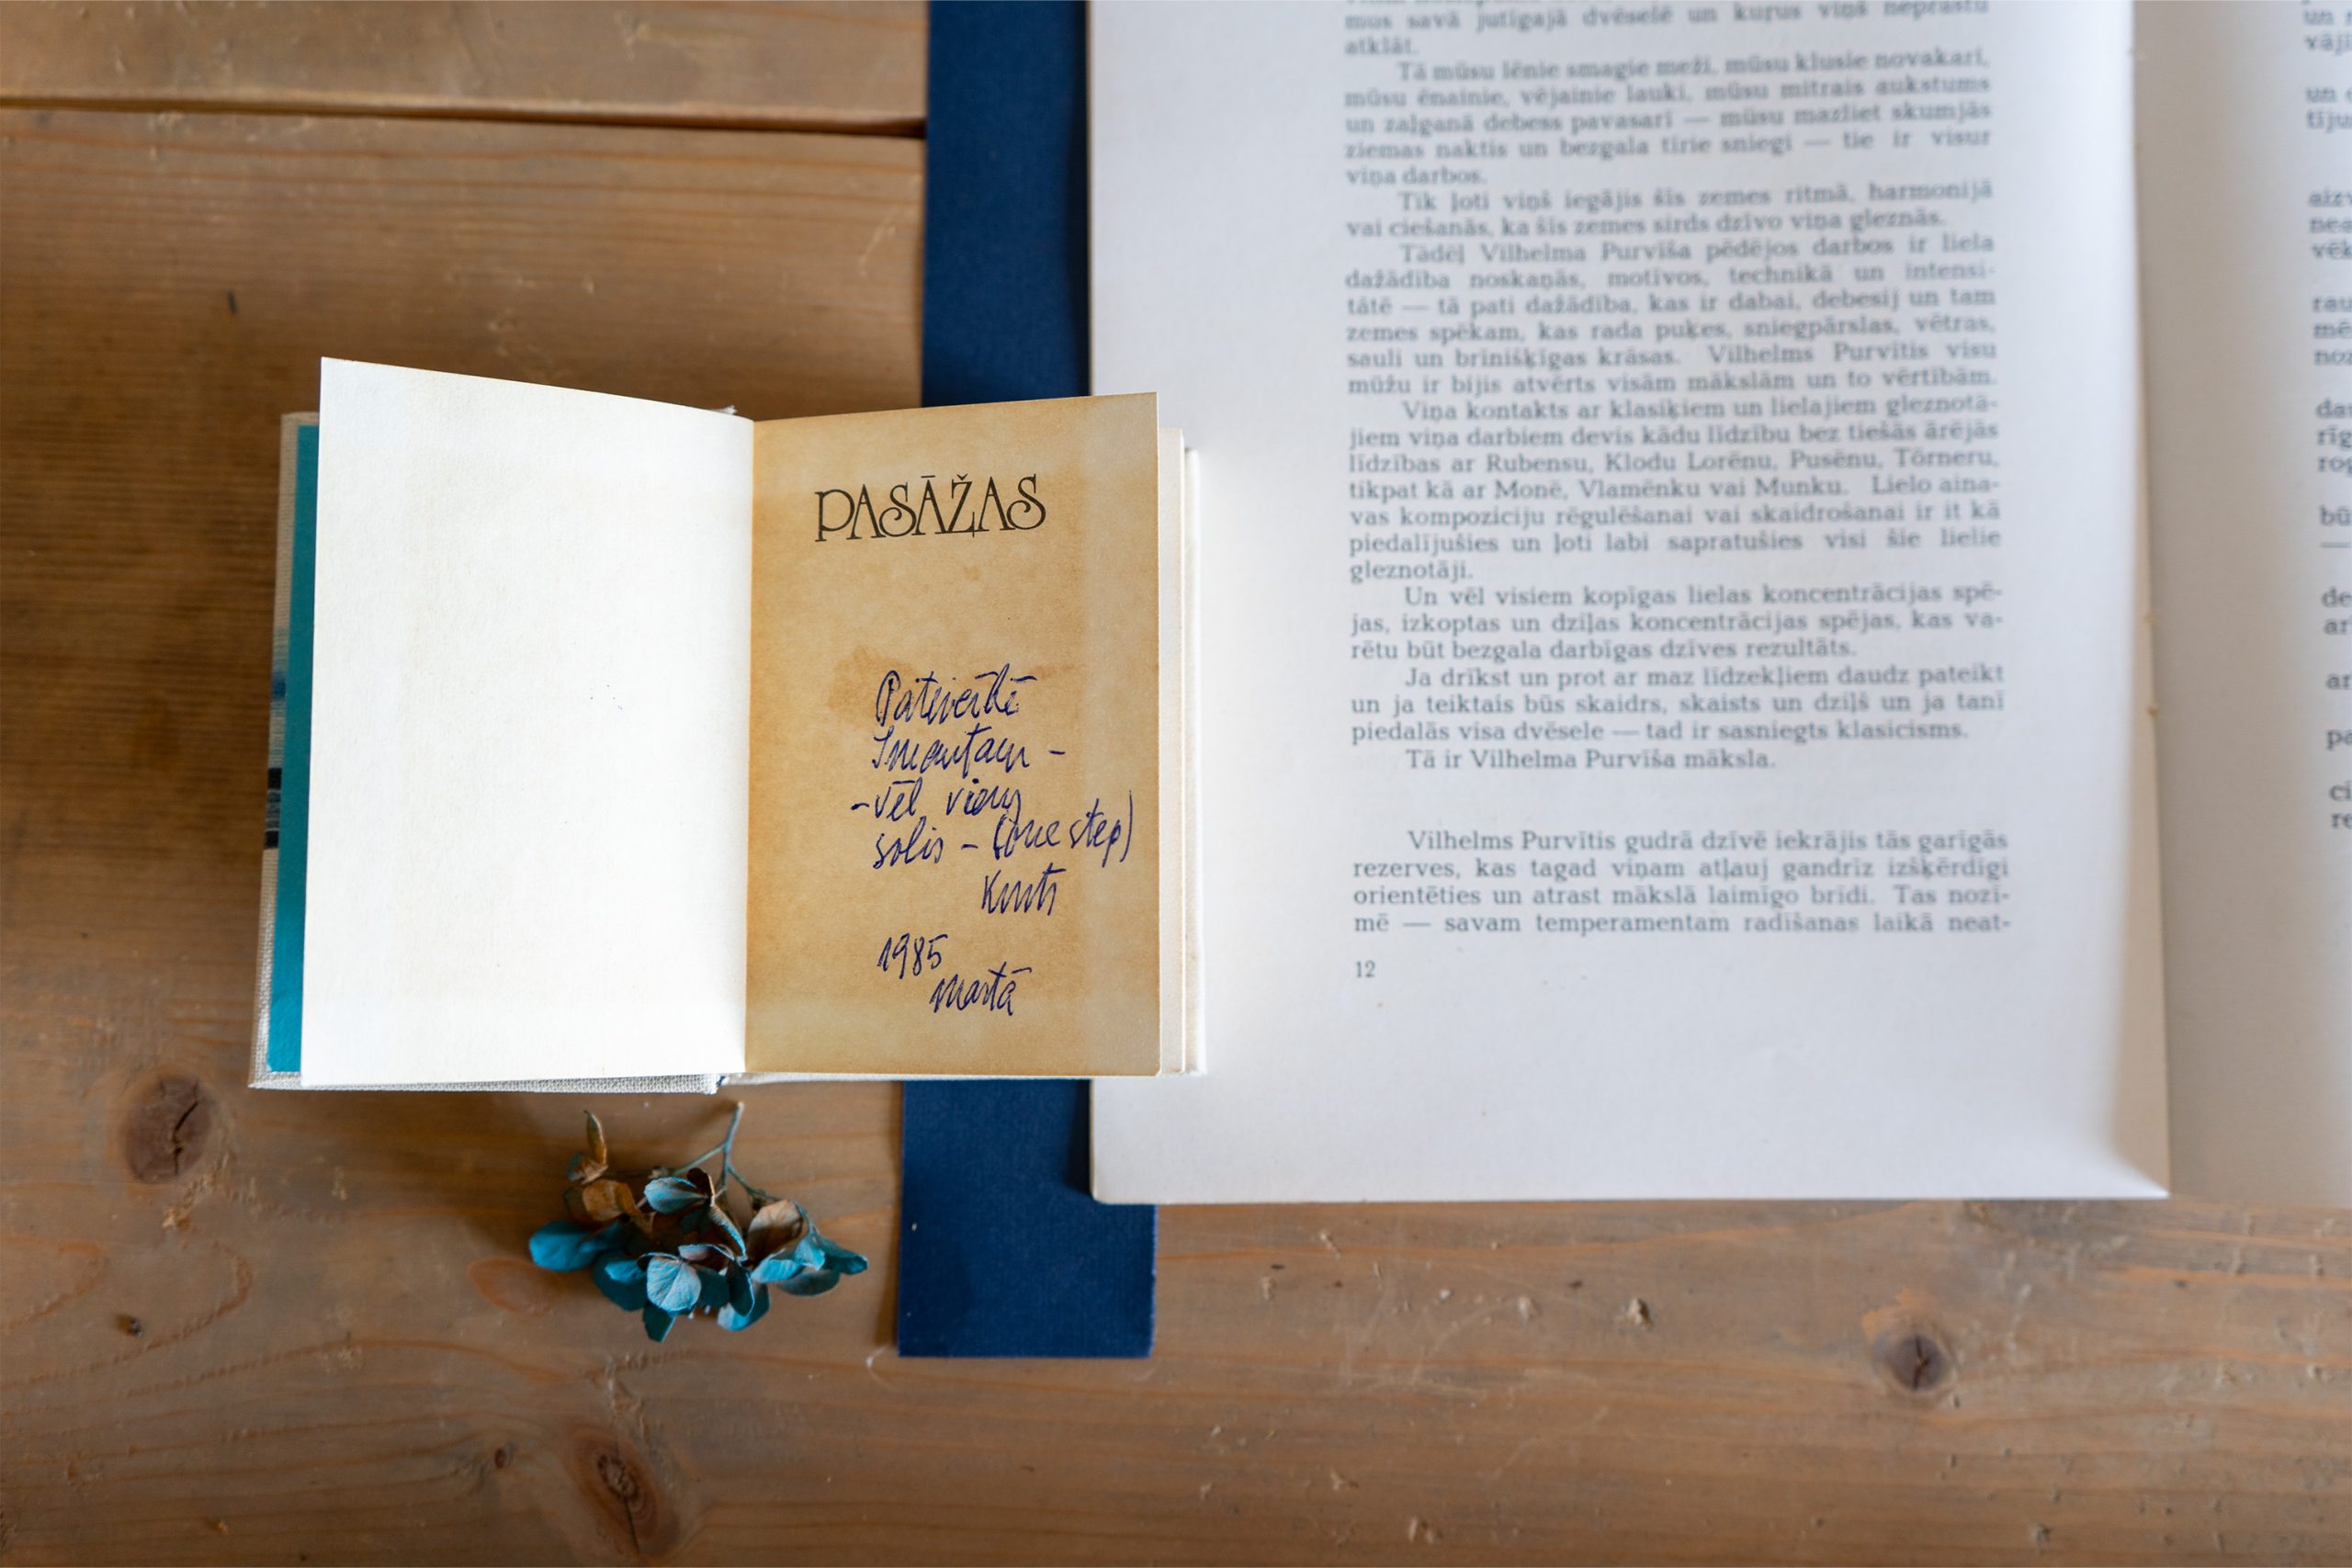 PASĀŽAS
Pateicībā
Imantam -
- vēl viens
solis - (one step)
1985
martā
mus savā jutīgajā dvēselē un kuŗus viņš neprastu
atklāt.
Tā mūsu lēnie smagie meži, mūsu klusie novakari,
mūsu ēnainie, vējainie lauki, mūsu mitrais aukstums
un zaļganā debess pavasarī — mūsu mazliet skumjās
ziemas naktis un bezgala tīrie sniegi — tie ir visur
viņa darbos.
Tik ļoti viņš iegājis šīs zemes ritmā, harmonijā
vai ciešanās, ka šīs zemes sirds dzīvo viņa gleznās.
Tādēļ Vilhelma Purvīša pēdējos darbos ir liela
dažādība noskaņās, motīvos, technikā un intensi-
tātē — tā pati dažādība, kas ir dabai, debesij un tam
zemes spēkam, kas rada puķes, sniegpārslas, vētras,
sauli un brīnišķīgas krāsas. Vilhelms Purvītis visu
mūžu ir bijis atvērts visām mākslām un to vērtībām.
Viņa kontakts ar klasiķiem un lielajiem gleznotā-
jiem viņa darbiem devis kādu līdzību bez tiešās ārējās
līdzības ar Rubensu, Klodu Lorēnu, Pusēnu, Tőrneru,
tikpat kā ar Monē, Vlamēnku vai Munku. Lielo aina-
vas kompoziciju rēgulēšanai vai skaidrošanai ir it kā
piedalījušies un ļoti labi sapratušies visi šie lielie
gleznotāji.
Un vēl visiem kopīgas lielas koncentrācijas spē-
jas, izkoptas un dziļas koncentrācijas spējas, kas va-
rētu būt bezgala darbīgas dzīves rezultāts.
Ja drīkst un prot ar maz līdzekļiem daudz pateikt
un ja teiktais būs skaidrs, skaists un dziļš un ja tanī
piedalās visa dvēsele — tad ir sasniegts klasicisms.
Tā ir Vilhelma Purvīša māksla.
Vilhelms Purvītis gudrā dzīvē iekrājis tās garīgās
rezerves, kas tagad viņam atļauj gandrīz izšķērdīgi
orientēties un atrast mākslā laimīgo brīdi. Tas nozī-
mē — savam temperamentam radīšanas laikā neat-
12